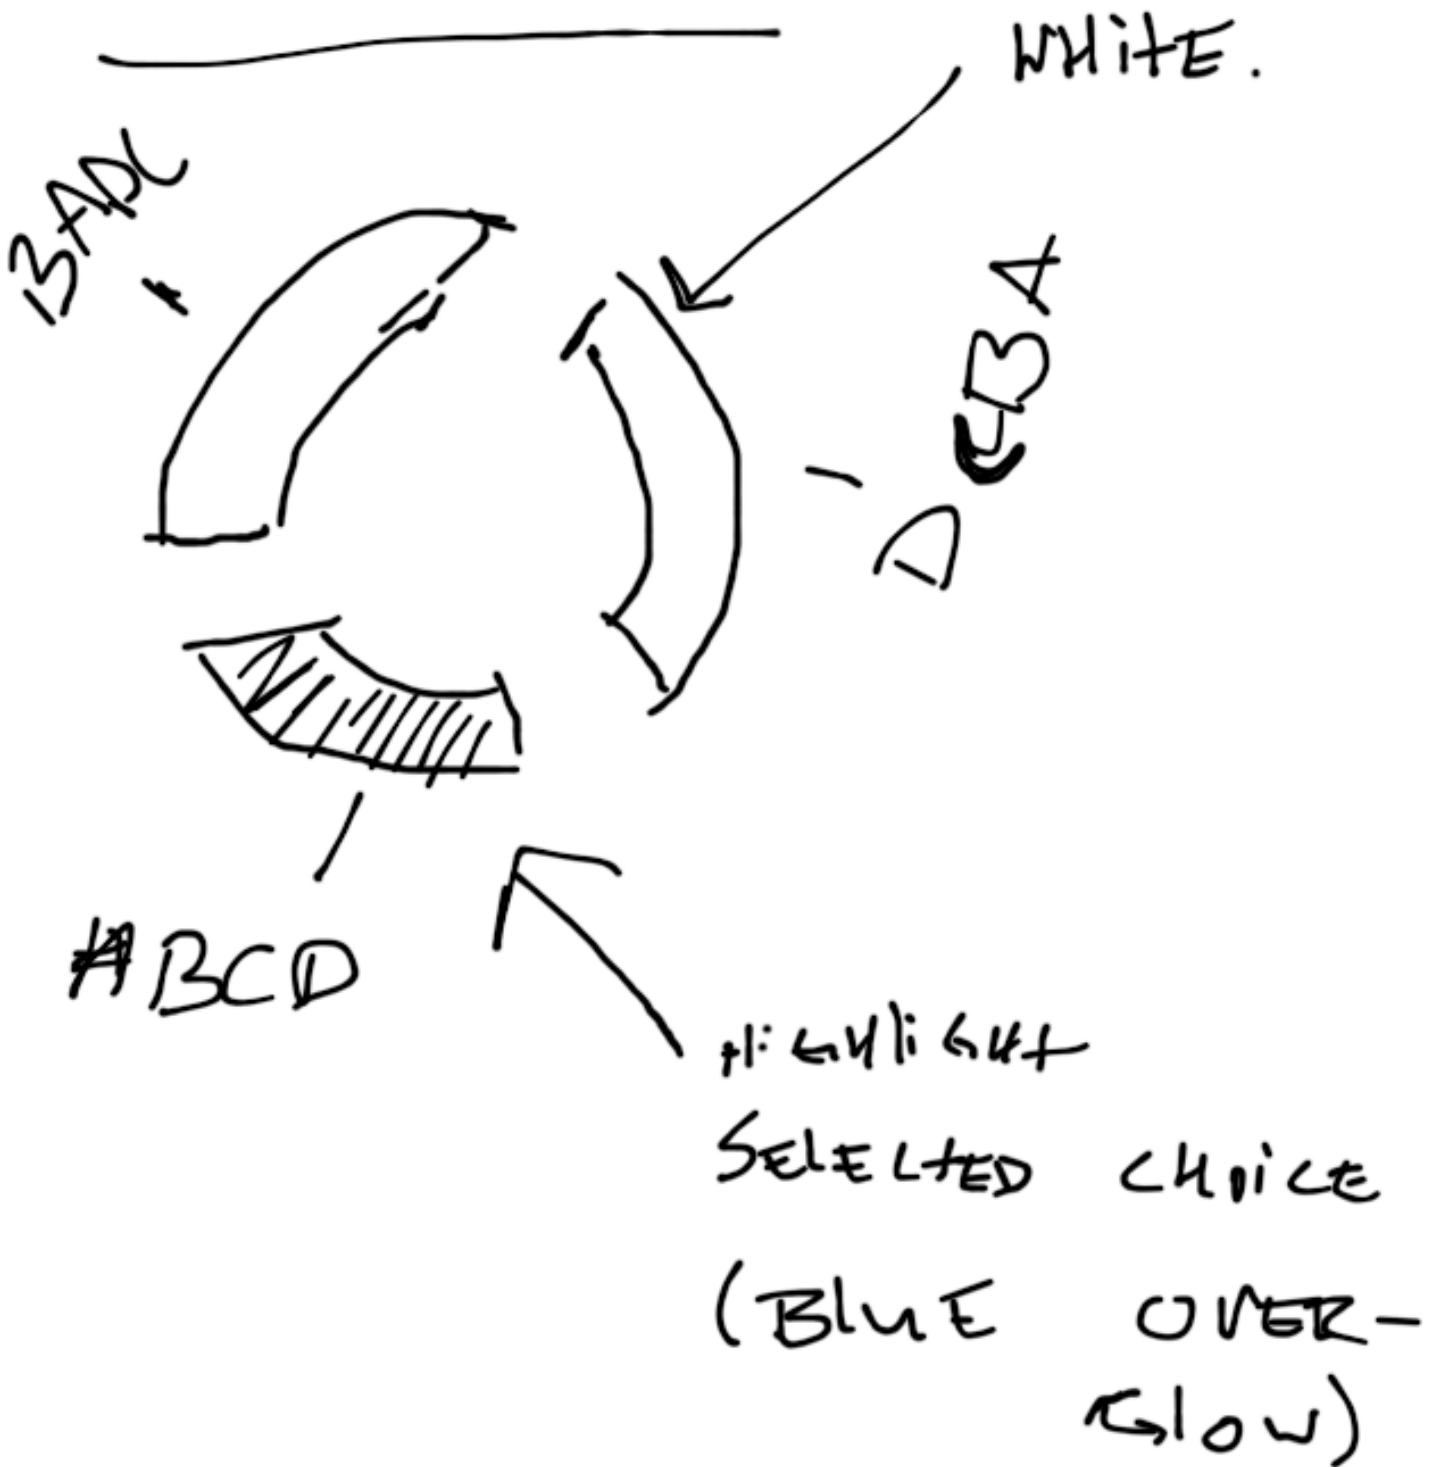 WHitE.
BADC
DCBA
ABCD
HiGHliGHt
SElECtED CHOiCE
(BluE OVER-
Glow)